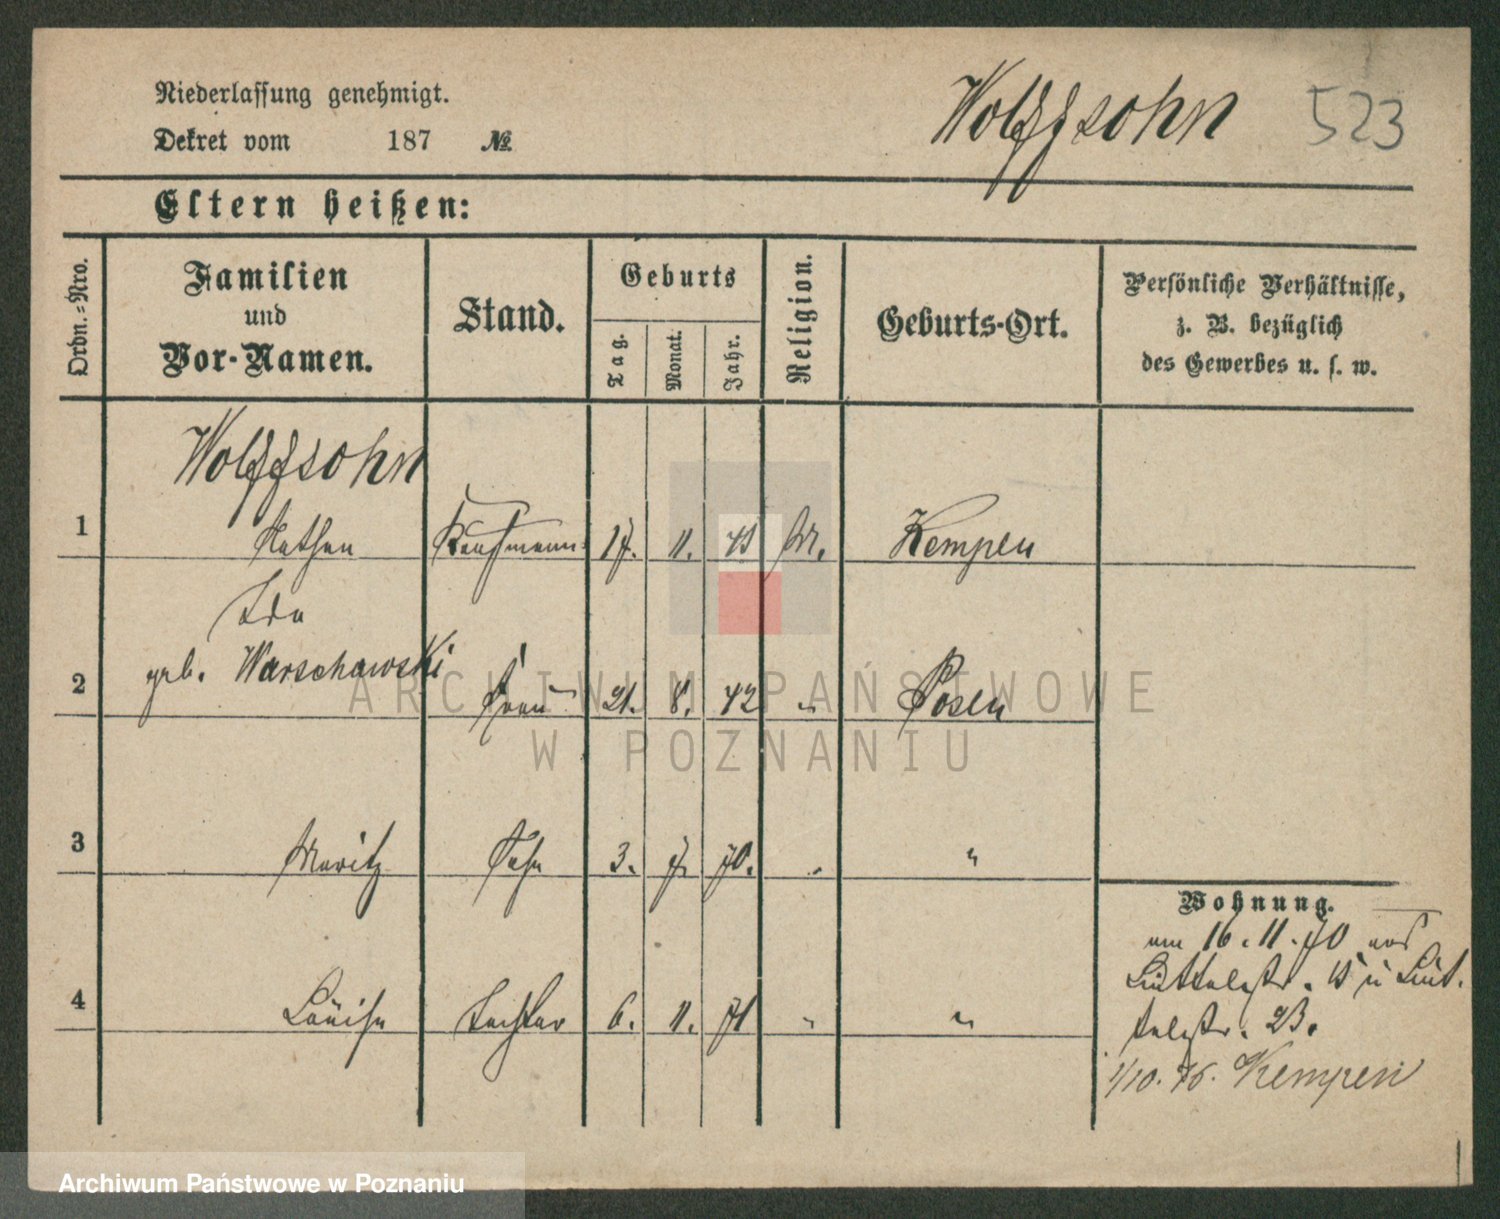 Niederlassung genehmigt.
Wolffsohn 523
Dekret vom 187 №
Eltern heißen:
Ordn.-Nro.
Familien
und
Vor-Namen.
Stand.
Geburts
Tag.
Monat.
Jahr.
Religion.
Geburts-Ort.
Persönliche Verhältnisse,
z. B. bezüglich
des Gewerbes u. s. w.
Wolffsohn
1 Nathan Kaufmann 17. 11. M. Kempen
Ida
geb. Warschawski
2 Frau 21. 8. 42 " Posen
3 Moritz Sohn 3. 7. 70. "
4 Louise Tochter 6. 11. 71 " "
Wohnung.
am 16.11.70 aus
23.
1/10. 76. Kempen
ARCHIWUM PAŃSTWOWE
W POZNANIU
Archiwum Państwowe w Poznaniu